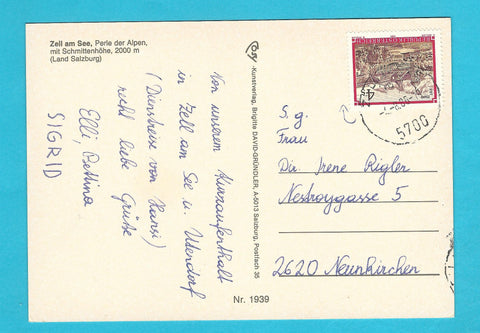 Zell am See, Perle der Alpen,
mit Schmittenhöhe, 2000 m
(Land Salzburg)
Von unserem Kurzaufenthalt
in Zell am See u. Uttendorf
(Dienstreise von Hansi)
recht liebe Grüße
Elli, Bettina
SIGRID
Cosy -Kunstverlag, Brigitte DAVID-GRÜNDLER, A-5013 Salzburg, Postfach 35
5700
S. g.
Frau
Dir. Irene Rigler
Nestroygasse 5
2620 Neunkirchen
Nr. 1939